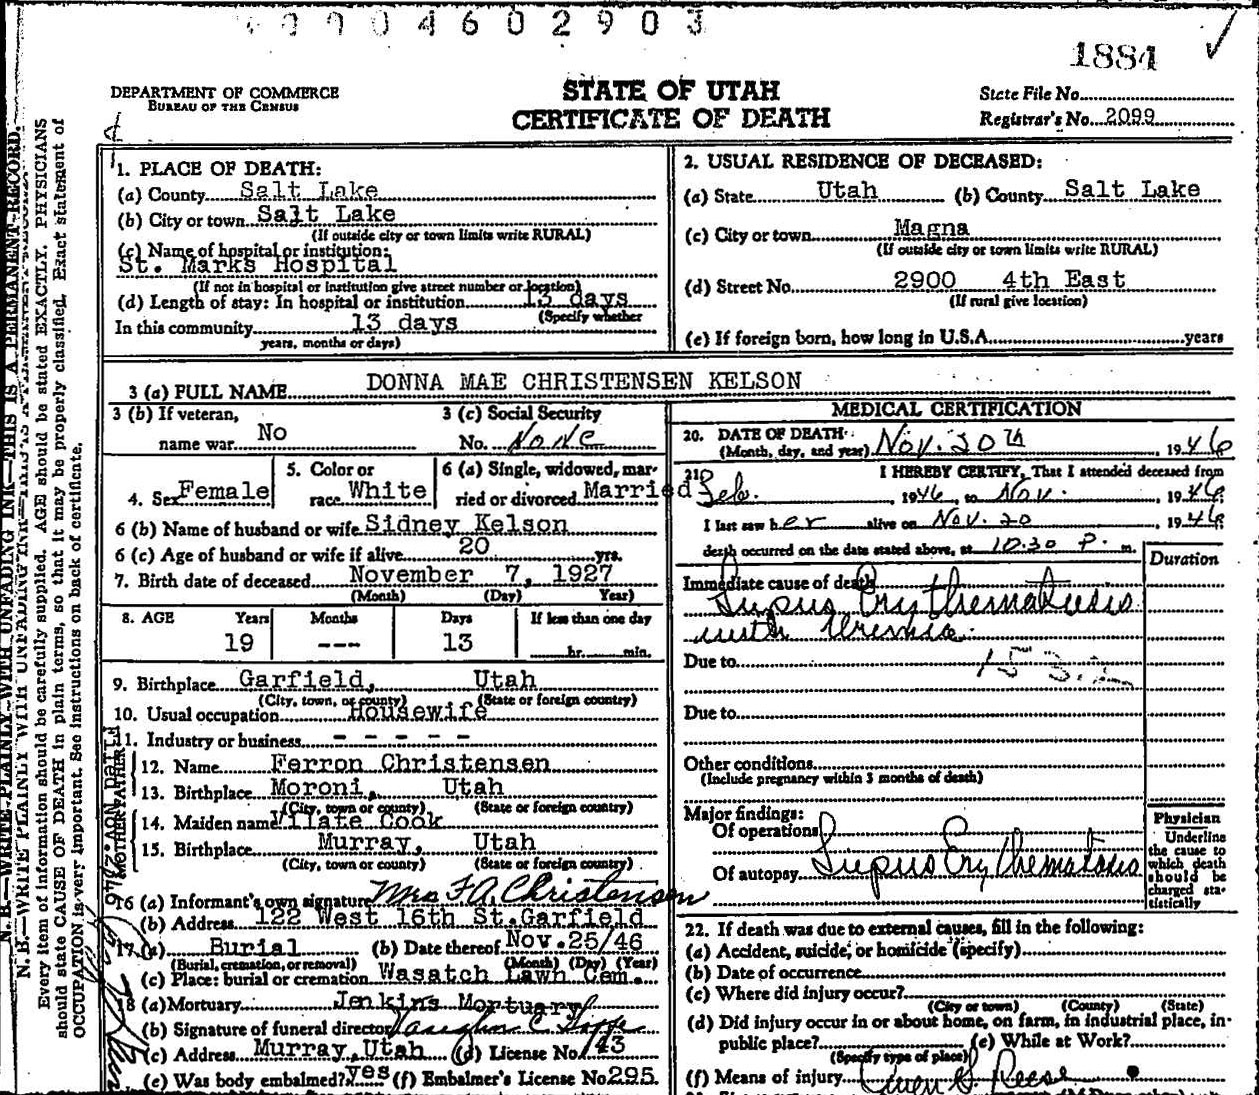 0004602903
1884
DEPARTMENT OF COMMERCE
BUREAU OF THE CENSUS
STATE OF UTAH
CERTIFICATE OF DEATH
State File No.
Registrar's No. 2099
N. B.—WRITE PLAINLY WITH UNFADING INK—THIS IS A PERMANENT RECORD.
Every item of information should be carefully supplied. AGE should be stated EXACTLY. PHYSICIANS
should state CAUSE OF DEATH in plain terms, so that it may be properly classified. Exact statement of
OCCUPATION is very important. See instructions on back of certificate.
1. PLACE OF DEATH:
(a) County Salt Lake
(b) City or town Salt Lake
(If outside city or town limits write RURAL)
(c) Name of hospital or institution:
St. Marks Hospital
(If not in hospital or institution give street number or location)
(d) Length of stay: In hospital or institution 13 days
(Specify whether
In this community 13 days
years, months or days)
2. USUAL RESIDENCE OF DECEASED:
(a) State Utah (b) County Salt Lake
(c) City or town Magna
(If outside city or town limits write RURAL)
(d) Street No. 2900 4th East
(If rural give location)
(e) If foreign born, how long in U.S.A. years
3 (a) FULL NAME DONNA MAE CHRISTENSEN KELSON
3 (b) If veteran,
name war No
3 (c) Social Security
No. None
4. Sex Female
5. Color or
race White
6 (a) Single, widowed, mar-
ried or divorced Married
6 (b) Name of husband or wife Sidney Kelson
6 (c) Age of husband or wife if alive 20 yrs.
7. Birth date of deceased November 7, 1927
(Month) (Day) Year)
8. AGE Years Months Days If less than one day
19 --- 13 hr. min.
9. Birthplace Garfield, Utah
(City, town, or county) (State or foreign country)
10. Usual occupation Housewife
11. Industry or business - - - - -
FATHER
12. Name Ferron Christensen
13. Birthplace Moroni, Utah
(City, town or county) (State or foreign country)
MOTHER
14. Maiden name Vilate Cook
15. Birthplace Murray, Utah
(City, town or county) (State or foreign country)
16 (a) Informant's own signature Mrs F A Christensen
(b) Address 122 West 16th St. Garfield
17 (a) Burial (b) Date thereof Nov. 25/46
(Burial, cremation, or removal) (Month) (Day) (Year)
(c) Place: burial or cremation Wasatch Lawn Cem.
18 (a) Mortuary Jenkins Mortuary
(b) Signature of funeral director Vaughn C
(c) Address Murray, Utah (d) License No. 43
(e) Was body embalmed? yes (f) Embalmer's License No. 295
MEDICAL CERTIFICATION
20. DATE OF DEATH:
(Month, day, and year) Nov. 20th, 1946
21. I HEREBY CERTIFY, That I attended deceased from
Feb. 1946, to Nov. 1946
I last saw her alive on Nov. 20, 1946
death occurred on the date stated above, at 10:30 P. m.
Duration
Immediate cause of death
Lupus Erythematosis
with Uremia.
Due to 153.2
Due to
Other conditions
(Include pregnancy within 3 months of death)
Major findings:
Of operations
Of autopsy Lupus Erythematosis
Physician
Underline
the cause to
which death
should be
charged sta-
tistically
22. If death was due to external causes, fill in the following:
(a) Accident, suicide, or homicide (specify)
(b) Date of occurrence
(c) Where did injury occur?
(City or town) (County) (State)
(d) Did injury occur in or about home, on farm, in industrial place, in-
public place? (e) While at Work?
(Specify type of place)
(f) Means of injury
Owen G. Reese